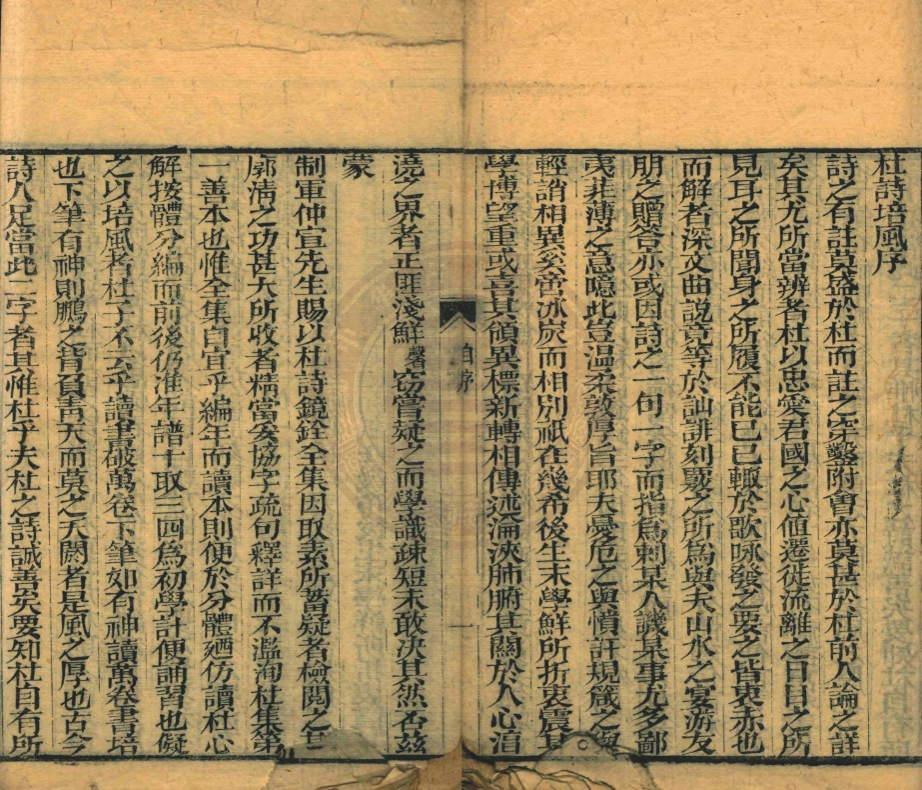 杜詩培風序
詩之有註莫盛於杜而註之穿鑿附會亦莫甚於杜前人論之詳
矣其尤所當辨者杜以忠愛君國之心值遷徙流離之日目之所
見耳之所聞身之所履不能已已輙於歌咏發之要之皆衷赤也
而解者深文曲說竟等於訕誹刻覈之所為與夫山水之宴游友
朋之贈答亦或因詩之一句一字而指為刺某人譏某事尤多鄙
夷菲薄之意噫此豈温柔敦厚旨耶夫憂危之與憤訐規箴之與
輕誚相異奚啻冰炭而相別祇在幾希後生末學鮮所折衷震其
學博望重或喜其領異標新轉相傳述淪浹肺腑其關於人心淯
自序
一
澆之界者正匪淺鮮 竊嘗疑之而學識疎短未敢決其然否茲
蒙
制軍仲宣先生賜以杜詩鏡銓全集因取素所蓄疑者檢閱之其
廓清之功甚大所收者精當奚協字疏句釋詳而不濫洵杜集第
一善本也惟全集自宜乎編年而讀本則便於分體廼仿讀杜心
解按體分編而前後仍准年譜十取三四為初學計便誦習也儗
之以培風者杜子不云乎讀書破萬卷下筆如有神讀萬卷書培
也下筆有神則鵬之背負青天而莫之夭閼者是風之厚也古今
詩人足當此二字者其惟杜乎夫杜之詩誠善矣要知杜自有所